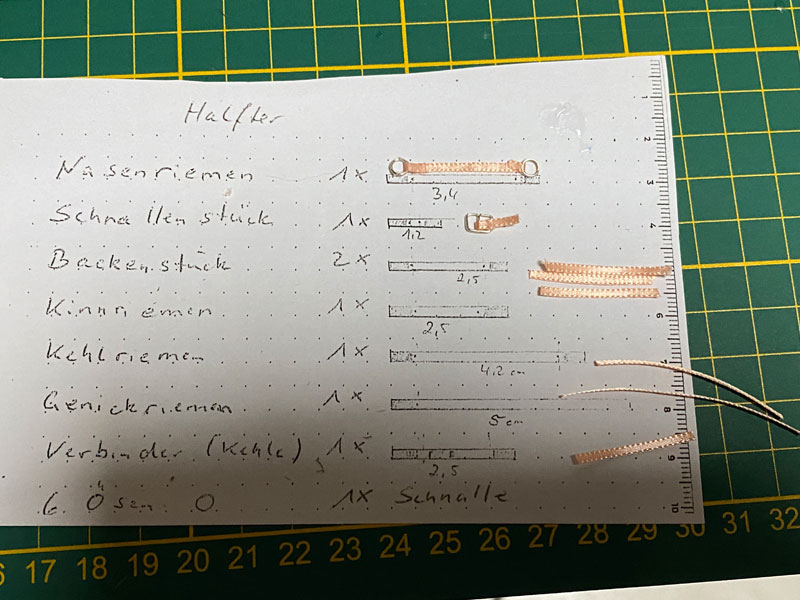 Halfter
Nasenriemen 1x 3,4
Schnallenstück 1x 1,2
Backenstück 2x 2,5
Kinnriemen 1x 2,5
Kehlriemen 1x 4,2 cm
Genickriemen 1x 5 cm
Verbinder (Kehle) 1x 2,5
6 Ösen O 1x Schnalle
1
2
3
4
6
7
8
9
10
17 18 19 20 21 22 23 24 25 26 27 28 29 30 31 32